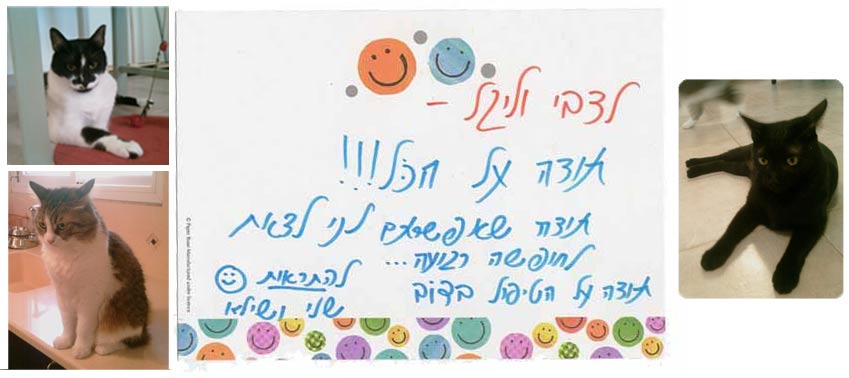 לצבי –
תודה על הכל!!!
תודה שאפשרתם לנו לצאת
לחופשה רגועה...
תודה על הטיפול
להתראות
שני
© Paper Rose Manufactured under licence